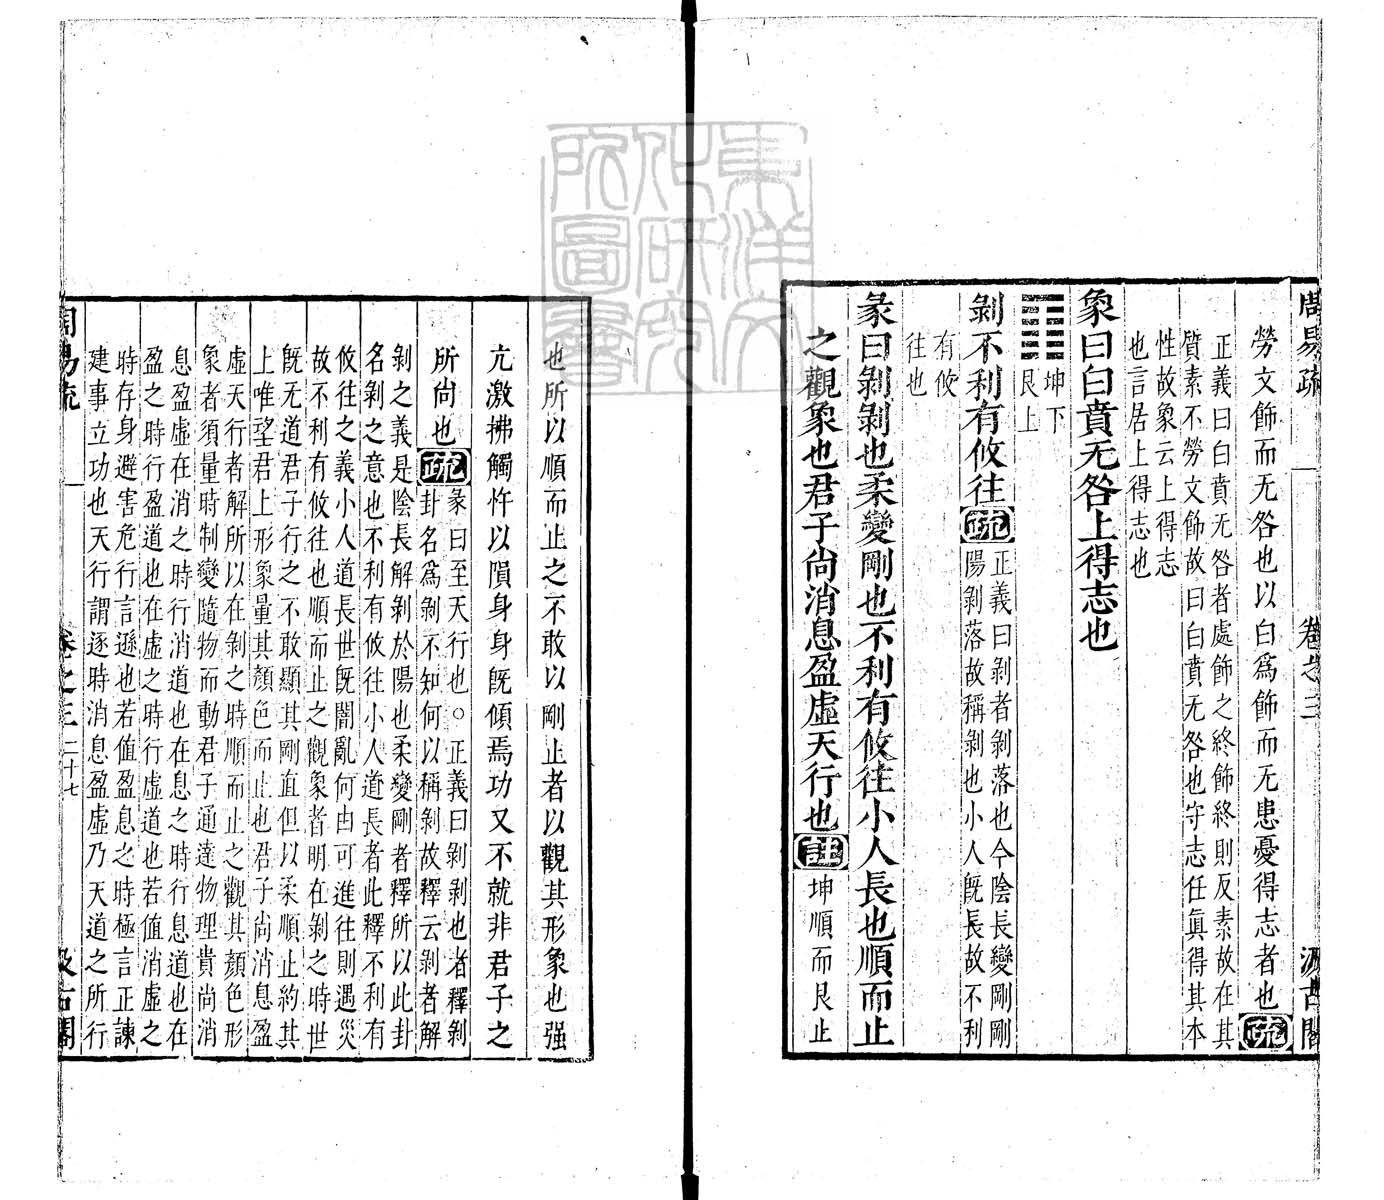 周易疏 卷之三 汲古閣
勞文飾而无咎也以白爲飾而无患憂得志者也疏
正義曰白賁无咎者處飾之終飾終則反素故在其
質素不勞文飾故曰白賁无咎也守志任眞得其本
性故象云上得志
也言居上得志也
象曰白賁无咎上得志也
坤下
艮上
剝不利有攸往疏正義曰剝者剝落也今陰長變剛剛
陽剝落故稱剝也小人旣長故不利
有攸
往也
彖曰剝剝也柔變剛也不利有攸往小人長也順而止
之觀象也君子尙消息盈虛天行也註坤順而艮止
也所以順而止之不敢以剛止者以觀其形象也强
亢激拂觸忤以隕身身旣傾焉功又不就非君子之
所尙也疏彖曰至天行也○正義曰剝剝也者釋剝
卦名爲剝不知何以稱剝故釋云剝者解
剝之義是陰長解剝於陽也柔變剛者釋所以此卦
名剝之意也不利有攸往小人道長者此釋不利有
攸往之義小人道長世旣闇亂何由可進往則遇災
故不利有攸往也順而止之觀象者明在剝之時世
旣无道君子行之不敢顯其剛直但以柔順止約其
上唯望君上形象量其顏色而止也君子尙消息盈
虛天行者解所以在剝之時順而止之觀其顏色形
象者須量時制變隨物而動君子通達物理貴尙消
息盈虛在消之時行消道也在息之時行息道也在
盈之時行盈道也在虛之時行虛道也若値消虛之
時存身避害危行言遜也若値盈息之時極言正諫
建事立功也天行謂逐時消息盈虛乃天道之所行
周易疏 卷之三 二十七 汲古閣
東洋文
化研究
所圖書